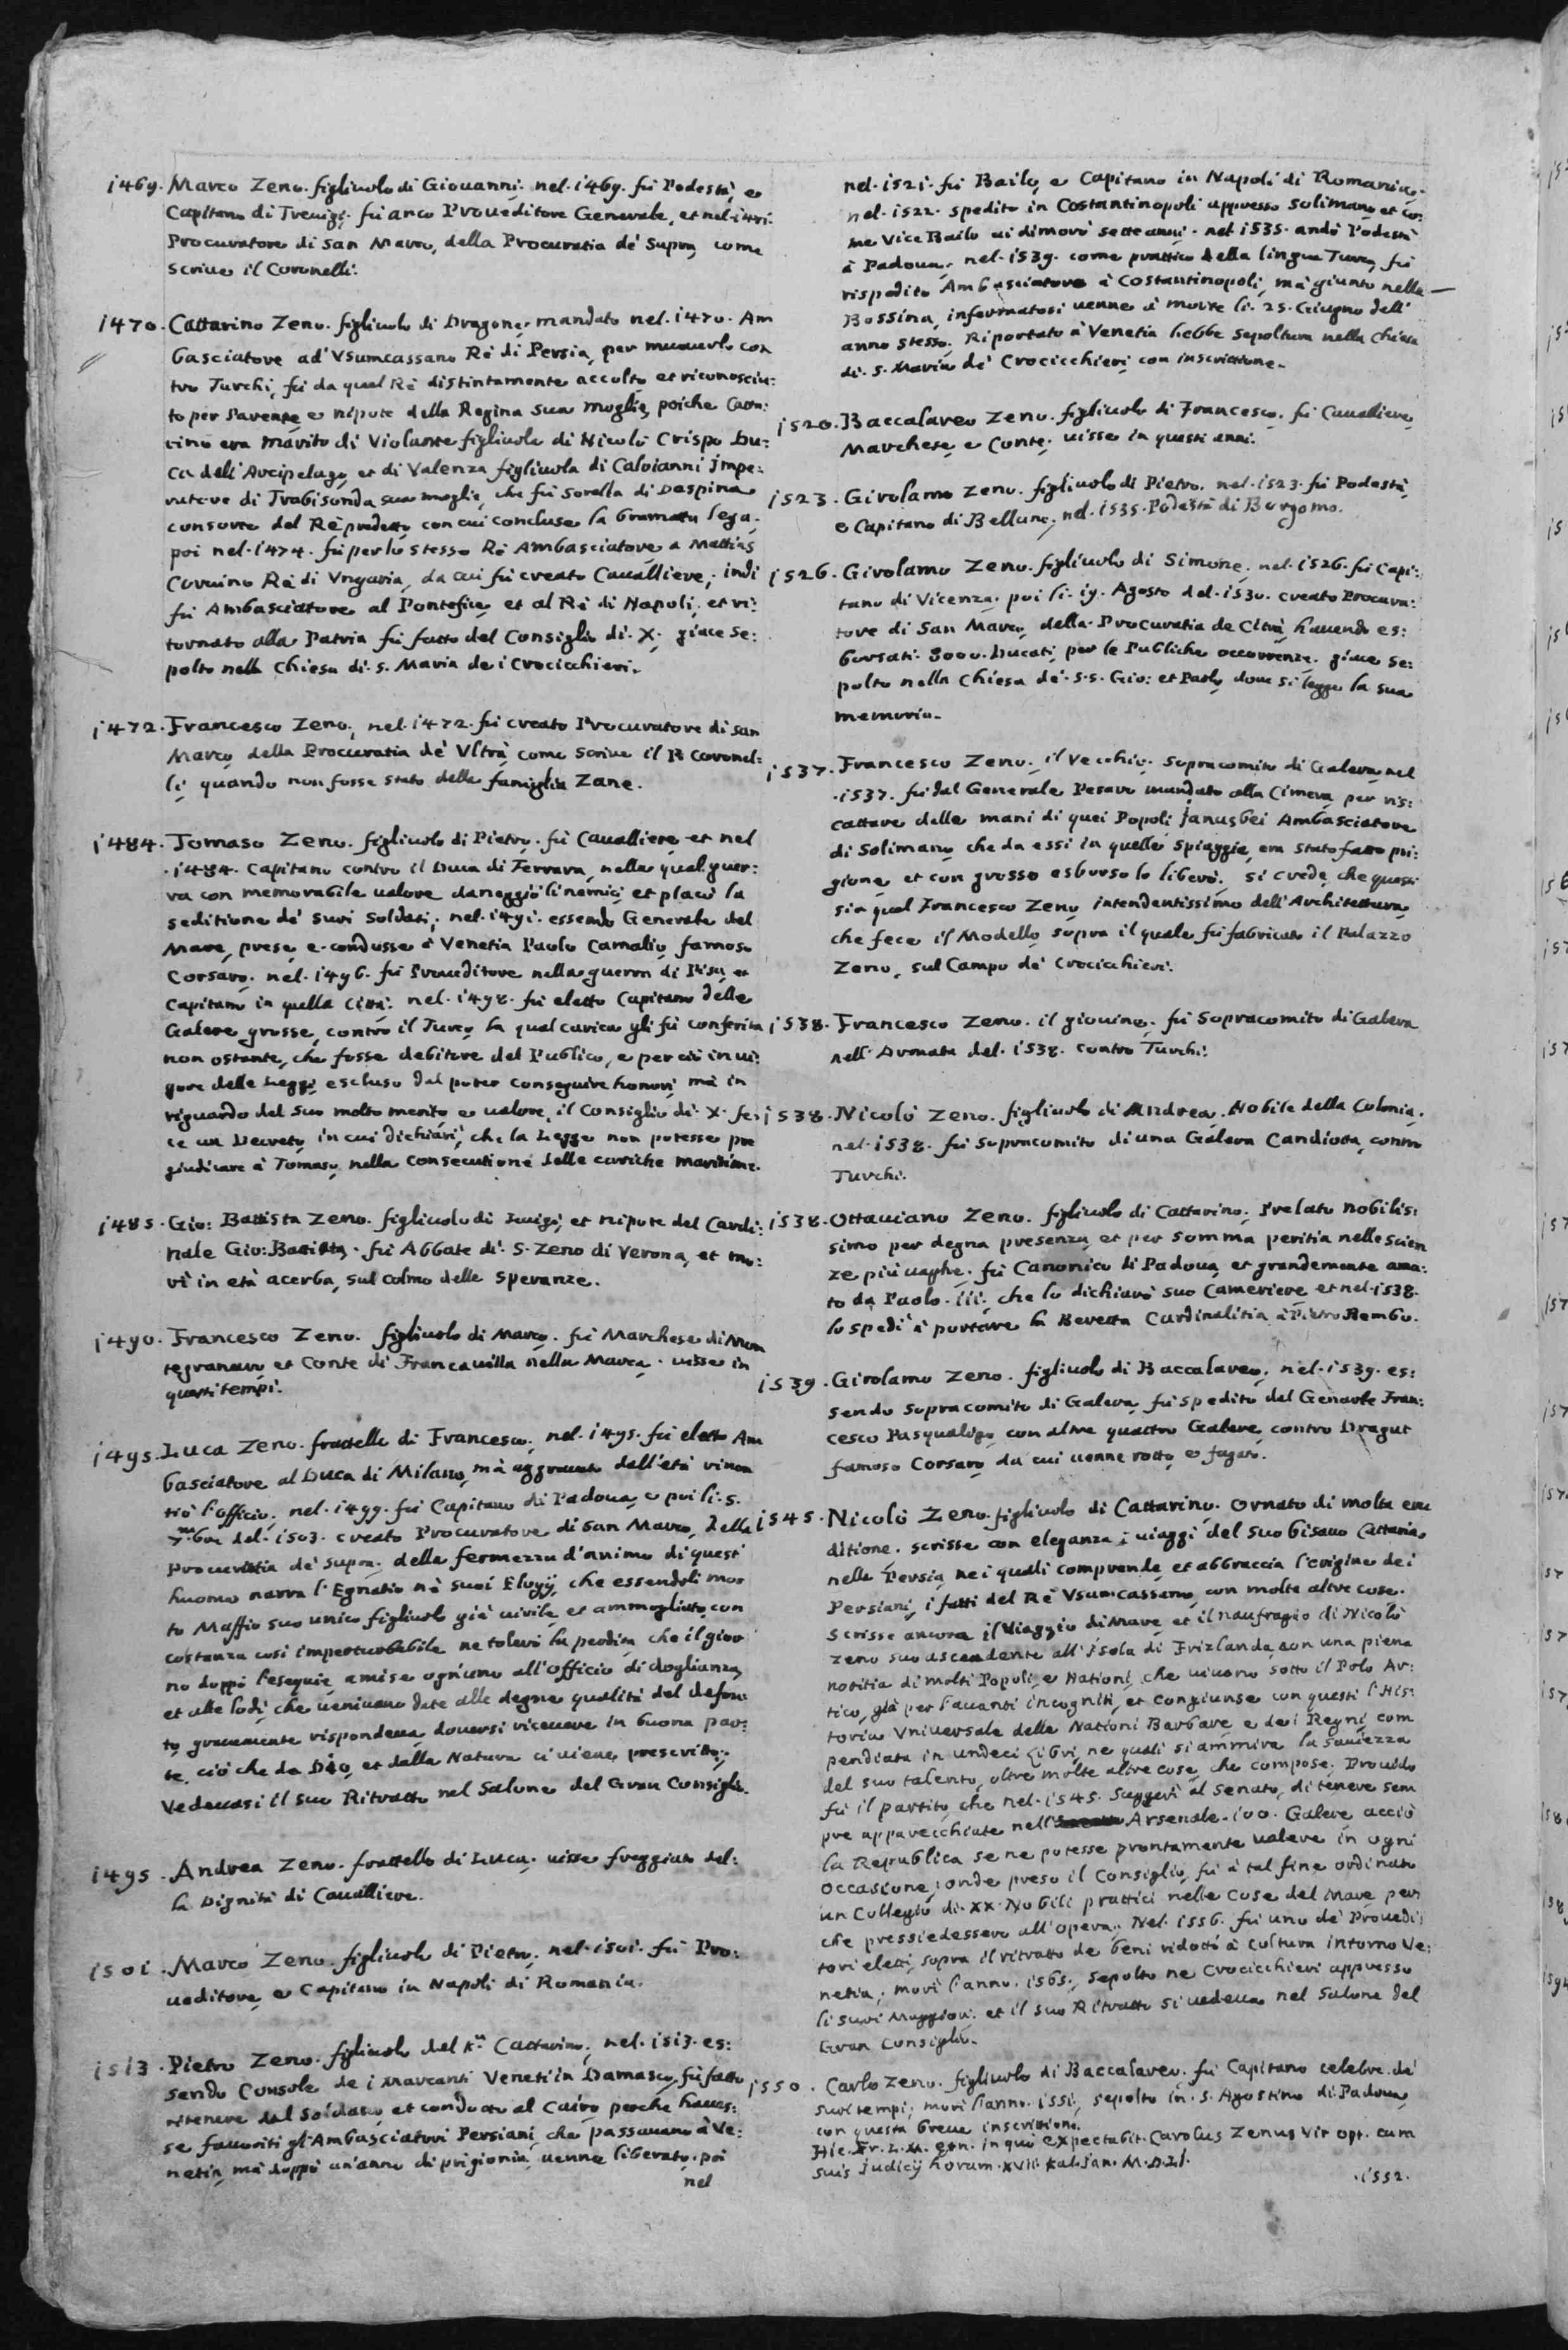 1469. Marco Zeno. figliuolo di Giouanni. nel. 1469. fù Podestà, e
Capitano di Treuigi. fù anco Proueditore Generale, et nel.
Procuratore di San Marco, della Procuratia de Supra, come
scriue il Coronelli.
1470. Cattarino Zeno. figliuolo di Dragone. mandato nel. 1470. Am
basciatore ad' Vsumcassano Rè di Persia, per muouerlo con
tro Turchi, fù da quel Rè distintamente accolto, et riconosciu:
to per Parente e nipote della Regina sua moglie, poiche Catta:
rino era marito di Violante figliuola di Nicolò Crispo Du:
ca dell'Arcipelago, et di Valenza figliuola di Caloianni Impe:
ratore di Trabisonda sua moglie, che fù sorella di Despina
consorte del Rè predetto, con cui concluse la bramata lega.
poi nel. 1474. fù per lo stesso Rè Ambasciatore a Mattias
Coruino Rè di Vngaria, da cui fù creato Caualliere, indi
fù Ambasciatore al Pontefice, et al Rè di Napoli, et ri:
tornato alla Patria fù fatto del Consiglio di. X. giace se:
polto nella Chiesa di. S. Maria de i Crocicchieri.
1472. Francesco Zeno. nel. 1472. fù creato Procuratore di San
Marco, della Procuratia de Vltrà come scriue il P. Coronel:
li, quando non fosse stato della famiglia Zane.
1484. Tomaso Zeno. figliuolo di Pietro. fù Caualliere, et nel
.1484. Capitano contro il Duca di Ferrara, nella qual guer:
ra con memorabile ualore daneggiò li nemici, et placò la
seditione de suoi soldati, nel. 1491. essendo Generale del
Mare, prese, e condusse à Venetia Paolo Camalio, famoso
Corsaro. nel. 1496. fù Proueditore nella guerra di Pisa, et
Capitano in quella Città. nel. 1498. fù eletto Capitano delle
Galere grosse, contro il Turco, la qual carica gli fù conferita
non ostante, che fosse debitore del Publico, e perciò in ui:
gore delle Leggi escluso dal poter conseguire honori, mà in
riguardo del suo molto merito e ualore, il Consiglio di. X. fe:
ce un Decreto, in cui dichiarì, che la Legge non potesse pre
giudicare à Tomaso, nella consecutione delle cariche maritime.
1485. Gio: Battista Zeno. figliuolo di Luigi, et nipote del Cardi:
nale Gio: Battista. fù Abbate di. S. Zeno di Verona, et mo:
rì in età acerba, sul colmo delle speranze.
1490. Francesco Zeno. figliuolo di Marco. fù Marchese di Mon
tegranaro, et Conte di Francauilla nella Marca. uisse in
questi tempi.
1495. Luca Zeno. frattello di Francesco. nel. 1495. fù eletto Am
basciatore al Duca di Milano, mà aggrauato dall'età rinon
tiò l'officio. nel. 1499. fù Capitano di Padoua, e poi li. 5.
del. 1503. creato Procuratore di San Marco, della
Procuratia de supra. della fermezza d'animo di quest'
huomo narra l'Egnatio nè suoi Elogij, che essendoli mor
to Maffio suo unico figliuolo già uirile, et ammogliato, con
costanza così imperturbabile ne tolerò la perdita, che il gior
no doppò l'esequie, amise ogn'uno all'officio di doglianza,
et alle lodi, che ueniuano date alle degne qualità del defon:
to, grauemente rispondeua, douersi riceuere in buona par:
te, ciò che da Dio, et dalla Natura ci uiene prescritto.
Vedeuasi il suo Ritratto nel Salone del Gran Consiglio.
1495. Andrea Zeno. frattello di Luca. uisse freggiato del:
la Dignità di Cauallier.
1501. Marco Zeno. figliuolo di Pietro. nel. 1501. fù Pro:
ueditore, e Capitano in Napoli di Romania.
1513. Pietro Zeno. figliuolo del Kr. Cattarino. nel. 1513. es:
sendo Console de i Marcanti Veneti in Damasco, fù fatto
ritenere dal Soldano, et condotto al Cairo, perche haues:
se fauoriti gl'Ambasciatori Persiani, che passauano à Ve:
netia, mà doppò un'anno di prigionia, uenne liberato. poi
nel
nel. 1521. fù Bailo, e Capitano in Napoli di Romania.
nel. 1522. spedito in Costantinopoli appresso Solimano, et co:
me Vice Bailo ui dimorò sette anni. nel 1535. andò Podestà
à Padoua. nel. 1539. come prattico della lingua Turca, fù
rispedito Ambasciatore à Costantinopoli, mà giunto nella
Bossina, infermatosi uenne à morte li. 25. Giugno dell'
anno stesso. Riportato à Venetia hebbe sepoltura nella Chiesa
di. S. Maria de Crocicchieri, con inscrittione.
1520. Baccalareo Zeno. figliuolo di Francesco. fù Caualliere,
Marchese, e Conte. uisse in questi anni.
1523. Girolamo Zeno. figliuolo di Pietro. nel. 1523. fù Podestà,
e Capitano di Belluno, nel. 1535. Podestà di Bergomo.
1526. Girolamo Zeno. figliuolo di Simone. nel. 1526. fù Capi:
tano di Vicenza. poi li. 19. Agosto del. 1530. creato Procura:
tore di San Marco, della Procuratia de Citrà, hauendo es:
borsati. 8000. Ducati, per le Publiche occorrenze. giace se:
polto nella Chiesa de'. S.S. Gio: et Paolo, doue si legge la sua
memoria.
1537. Francesco Zeno. il Vecchio. sopracomito di Galera, nel
.1537. fù dal Generale Pesaro mandato alla Cimera, per ris:
cattare dalle mani di quei Popoli Janusbei Ambasciatore
di Solimano, che da essi in quelle spiaggie, era stato fatto pri:
gione, et con grosso esborso lo liberò. si crede, che questi
sia quel Francesco Zeno, intendentissimo dell'Architettura,
che fece il Modello, sopra il quale fù fabricato il Palazzo
Zeno, sul Campo de Crocicchieri.
1538. Francesco Zeno. il giouine. fù Sopracomito di Galera
nell'Armata del. 1538. contro Turchi.
1538. Nicolò Zeno. figliuolo di Andrea. Nobile della Colonia.
nel. 1538. fù sopracomito di una Galera Candiotta, contro
Turchi.
1538. Ottauiano Zeno. figliuolo di Cattarino. Prelato nobilis:
simo per degna presenza, et per somma peritia nelle scien
ze più uaghe. fù Canonico di Padoua, et grandemente ama:
to da Paolo. iii. che lo dichiarò suo Cameriere, et nel. 1538.
lo spedì à portare la Beretta Cardinalitia à Pietro Bembo.
1539. Girolamo Zeno. figliuolo di Baccalareo. nel. 1539. es:
sendo sopracomito di Galera, fù spedito dal Generale Fran:
cesco Pasqualigo, con altre quattro Galere, contro Dragut
famoso Corsaro, da cui uenne rotto, e fugato.
1545. Nicolò Zeno. figliuolo di Cattarino. ornato di molta eru
ditione. scrisse con eleganza i uiaggi del suo bisauo Cattarino
nella Persia, ne i quali comprende, et abbraccia l'origine de i
Persiani, i fatti del Rè Vsumcassano, con molte altre cose.
Scrisse ancora il Viaggio di Mare, et il naufragio di Nicolò
Zeno suo ascendente all'Isola di Frizlanda, con una piena
notitia di molti Popoli, e Nationi, che uiuono sotto il Polo Ar:
tico, già per l'auanti incogniti, et congiunse con questi l'His:
toria Vniuersale delle Nationi Barbare, e de i Regni, com
pendiata in undeci Libri, ne quali si ammira la sauiezza
del suo talento, oltre molte altre cose, che compose. Prouido
fù il partito, che nel. 1545. suggerì al Senato, di tenere sem
pre apparecchiate nell' Arsenale. 100. Galere, acciò
la Republica se ne potesse prontamente ualere in ogni
occasione; onde preso il Consiglio, fù à tal fine ordinato
un Collegio di. XX. Nobili prattici nelle cose del Mare, per
che pressiedessero all'opera. Nel. 1556. fù uno de' Prouedi:
tori eletti, sopra il ritratto de beni ridotti à cultura intorno Ve:
netia, morì l'anno. 1565. sepolto ne Crocicchieri appresso
li suoi Maggiori. et il suo Ritratto si uedeua nel Salone del
Gran Consiglio.
1550. Carlo Zeno. figliuolo di Baccalareo. fù Capitano celebre de'
suoi tempi. morì l'anno. 1551. sepolto in. S. Agostino di Padoua,
con questa breue inscrittione.
Hic in quò expectabit. Carolus Zenus Vir opt. cum
suis judicij horam. XVII. Kal. Jan. M.D.LI.
.1552.